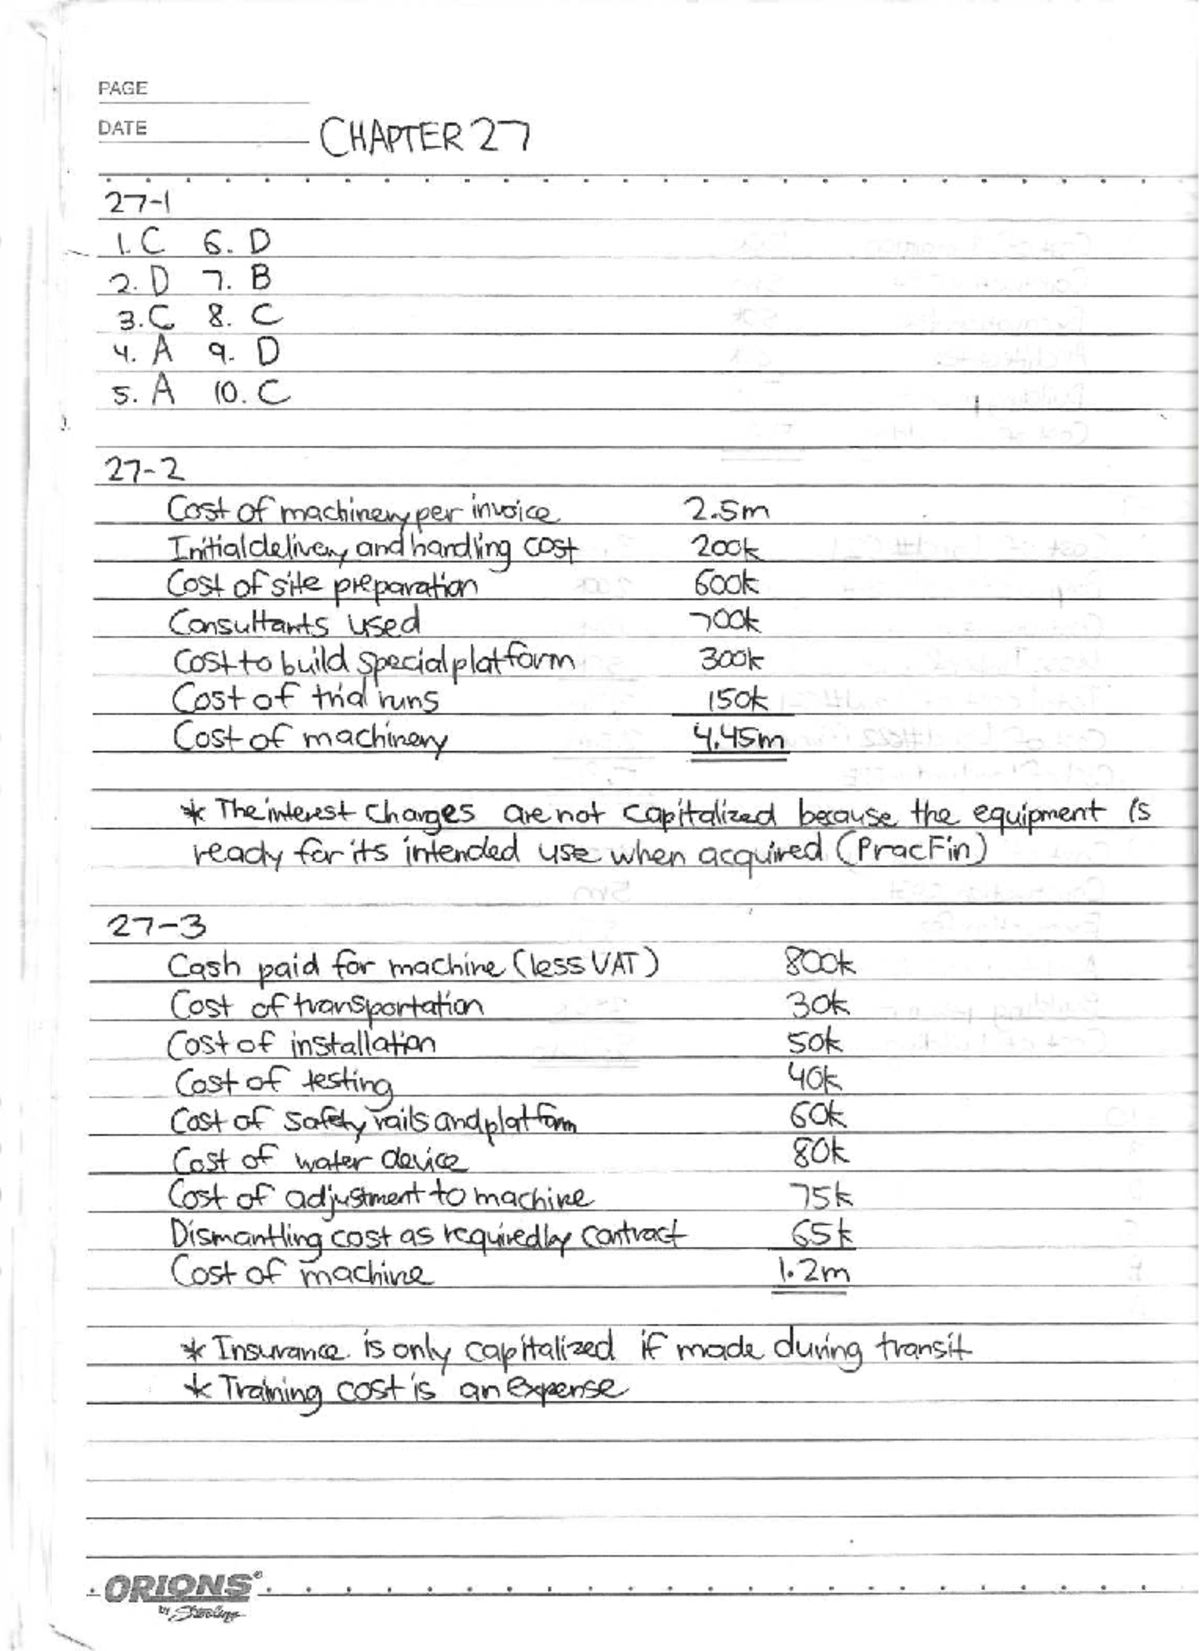 PAGE
DATE
CHAPTER 27
27-1
1. C 6. D
2. D 7. B
3. C 8. C
4. A 9. D
5. A 10. C
27-2
Cost of machinery per invoice 2.5m
Initial delivery and handling cost 200k
Cost of site preparation 600k
Consultants used 700k
Cost to build special platform 300k
Cost of trial runs 150k
Cost of machinery 4.45m
* The interest charges are not capitalized because the equipment is
ready for its intended use when acquired (PracFin)
27-3
Cash paid for machine (less VAT) 800k
Cost of transportation 30k
Cost of installation 50k
Cost of testing 40k
Cost of safety rails and platform 60k
Cost of water device 80k
Cost of adjustment to machine 75k
Dismantling cost as required by contract 65k
Cost of machine 1.2m
* Insurance is only capitalized if made during transit
* Training cost is an expense
ORIONS®
by Sterling